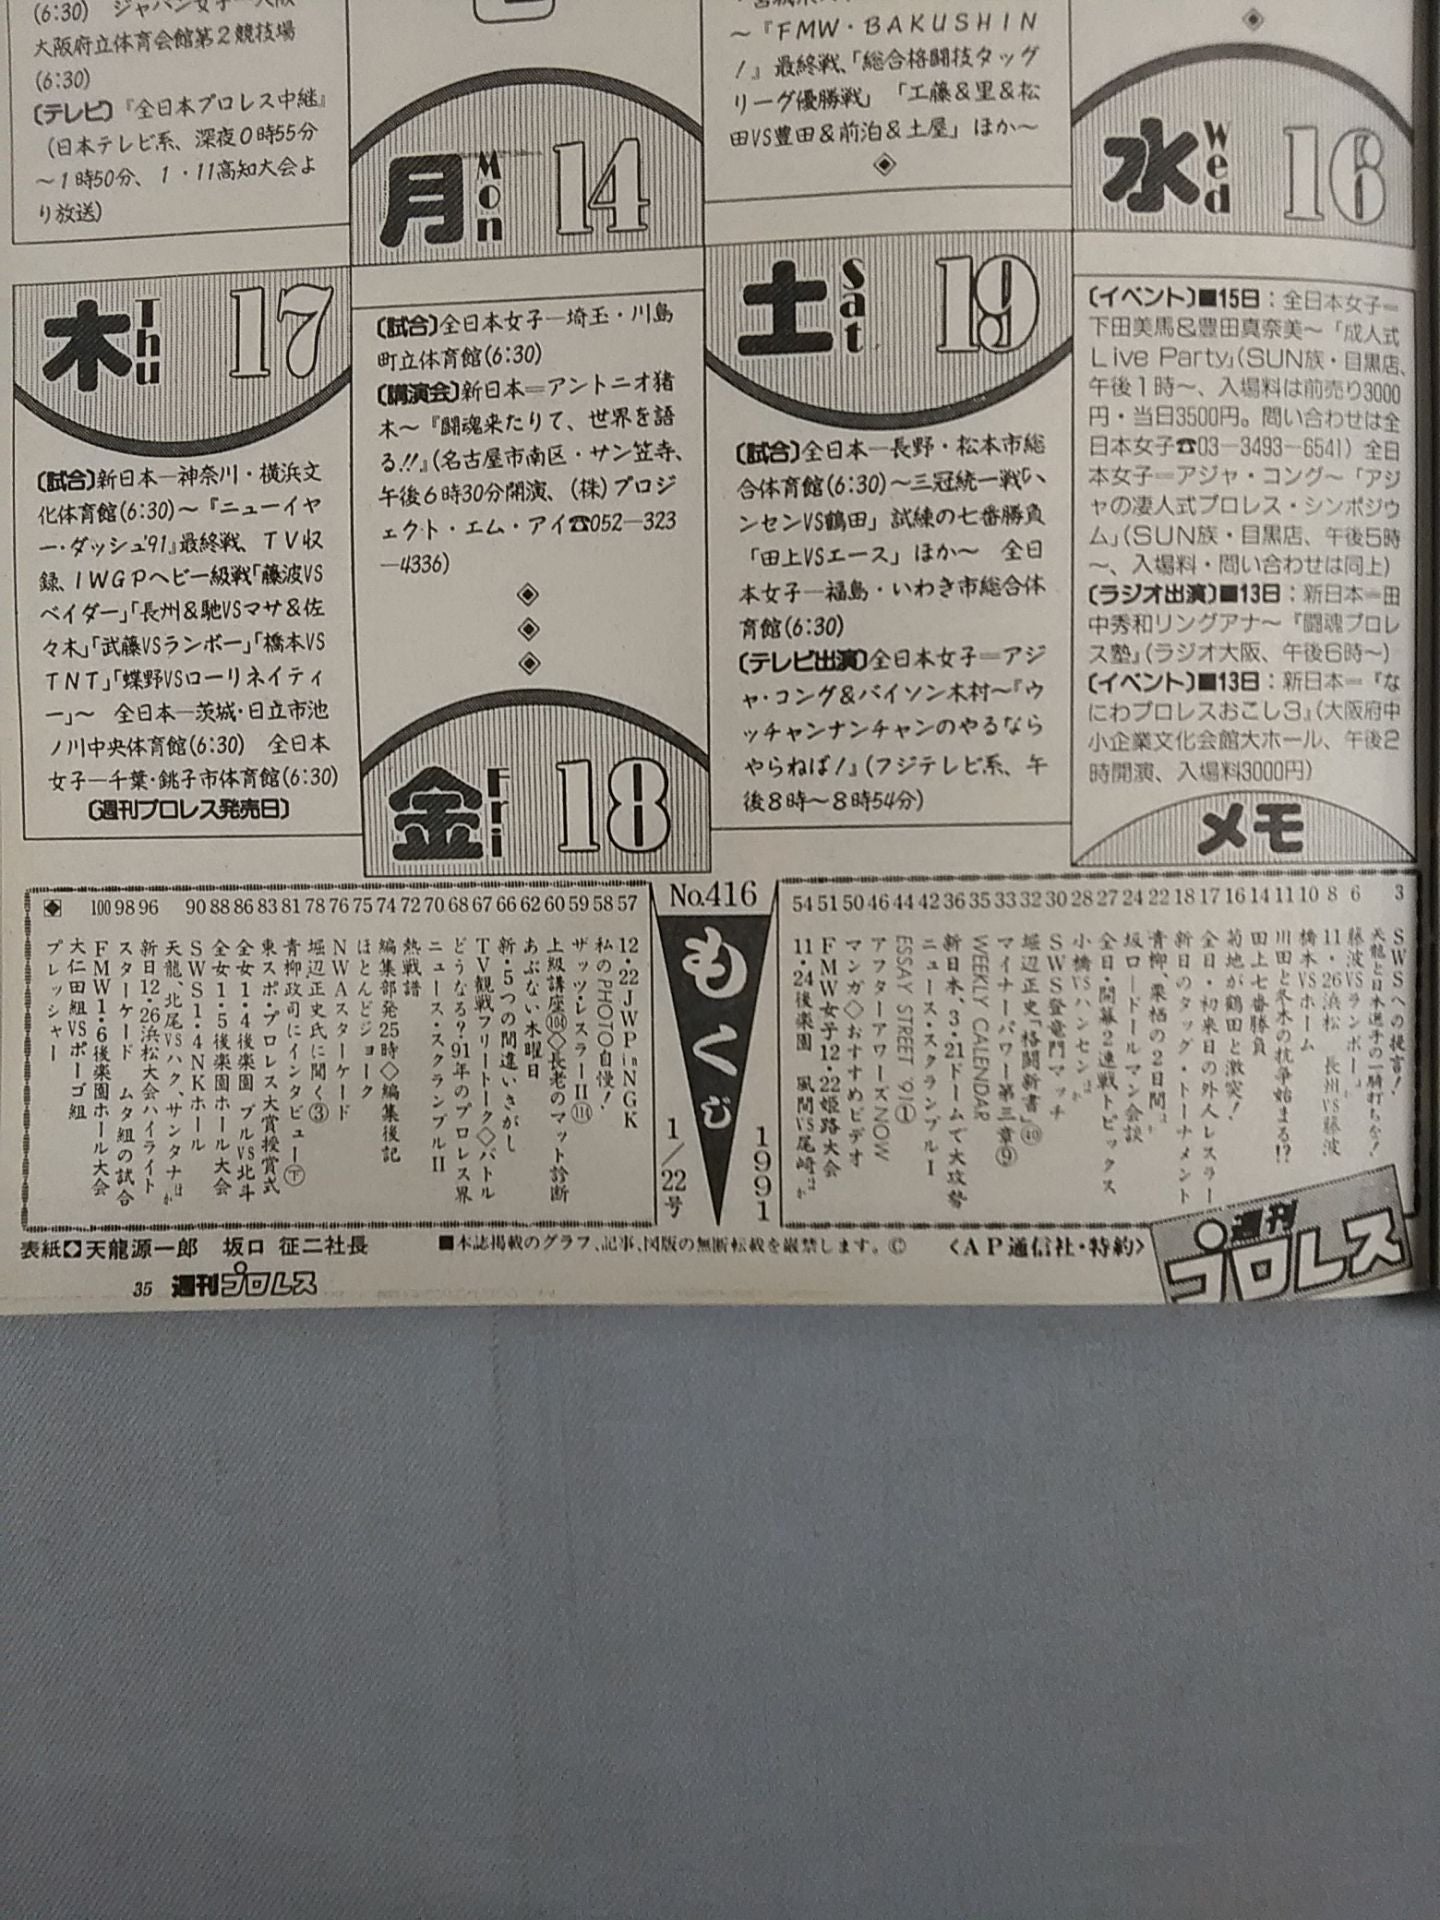 (6:30)　ジャパン女子―大阪・
大阪府立体育会館第２競技場
(6:30)
〔テレビ〕『全日本プロレス中継』
（日本テレビ系、深夜０時55分
～１時50分、１・11高知大会よ
り放送）
月 Mon 14
～『ＦＭＷ・ＢＡＫＵＳＨＩＮ
！』最終戦、「総合格闘技タッグ
リーグ優勝戦」「工藤＆里＆松
田VS豊田＆前泊＆土屋」ほか～
水 Wed 16
木 Thu 17
〔試合〕新日本―神奈川・横浜文
化体育館(6:30)～『ニューイヤ
ー・ダッシュ'91』最終戦、ＴＶ収
録、ＩＷＧＰヘビー級戦「藤波VS
ベイダー」「長州＆馳VSマサ＆佐
々木」「武藤VSランボー」「橋本VS
ＴＮＴ」「蝶野VSローリネイティ
ー」～　全日本―茨城・日立市池
ノ川中央体育館(6:30)　全日本
女子―千葉・銚子市体育館(6:30)
〔週刊プロレス発売日〕
〔試合〕全日本女子―埼玉・川島
町立体育館(6:30)
〔講演会〕新日本＝アントニオ猪
木～『闘魂来たりて、世界を語
る!!』（名古屋市南区・サン笠寺、
午後６時30分開演、（株）プロジ
ェクト・エム・アイ☎052―323
―4336）
金 Fri 18
土 Sat 19
〔試合〕全日本―長野・松本市総
合体育館(6:30)～三冠統一戦「ハ
ンセンVS鶴田」試練の七番勝負
「田上VSエース」ほか～　全日
本女子―福島・いわき市総合体
育館(6:30)
〔テレビ出演〕全日本女子＝アジ
ャ・コング＆バイソン木村～『ウ
ッチャンナンチャンのやるなら
やらねば！』（フジテレビ系、午
後８時～８時54分）
〔イベント〕■15日：全日本女子＝
下田美馬＆豊田真奈美～「成人式
Live Party」（SUN族・目黒店、
午後１時～、入場料は前売り3000
円・当日3500円。問い合わせは全
日本女子☎03―3493―6541）全日
本女子＝アジャ・コング～「アジ
ャの凄人式プロレス・シンポジウ
ム」（SUN族・目黒店、午後５時
～、入場料・問い合わせは同上）
〔ラジオ出演〕■13日：新日本＝田
中秀和リングアナ～『闘魂プロレ
ス塾』（ラジオ大阪、午後６時～）
〔イベント〕■13日：新日本＝『な
にわプロレスおこし３』（大阪府中
小企業文化会館大ホール、午後２
時開演、入場料3000円）
メモ
3 SWSへの提言！
天龍と日本選手の一騎打ちを！
6 藤波VSランボーほか
8 11・26浜松　長州VS藤波
10 橋本VSホーム
11 川田と冬木の抗争始まる!?
14 田上七番勝負
16 菊地が鶴田と激突！
17 全日・初来日の外人レスラー
18 新日のタッグ・トーナメント
22 青柳、栗栖の２日間ほか
24 坂口―ドールマン会談
27 全日・開幕２連戦トピックス
28 小橋VSハンセンほか
30 SWS登竜門マッチ
32 堀辺正史「格闘新書」㊵
33 マイナーパワー第三章⑨
35 WEEKLY CALENDAR
36 新日本、３・21ドームで大攻勢
42 ニュース・スクランブルⅠ
44 ESSAY STREET '91①
46 アフターアワーズNOW
50 マンガ◇おすすめビデオ
51 FMW女子12・22姫路大会
54 11・24後楽園　風間VS尾崎ほか
No.416
もくじ
1991
1／22号
57 12・22JWP in NGK
58 私のPHOTO自慢！
59 ザッツ・レスラーⅡ(114)
60 上級講座(104)◇長老のマット診断
62 あぶない木曜日
66 新・５つの間違いさがし
67 TV観戦フリートーク◇バトル
68 どうなる？'91年のプロレス界
70 ニュース・スクランブルⅡ
72 熱戦譜
74 編集部発25時◇編集後記
75 ほとんどジョーク
76 NWAスターケード
78 堀辺正史氏に聞く③
81 青柳政司にインタビュー㊦
83 東スポ・プロレス大賞授賞式
86 全女１・４後楽園　ブルVS北斗
88 全女１・５後楽園ホール大会
90 SWS１・４NKホール
天龍、北尾VSハク、サンタナほか
96 新日12・26浜松大会ハイライト
98 スターケード　ムタ組の試合
100 FMW１・６後楽園ホール大会
大仁田組VSポーゴ組
プレッシャー
表紙◆天龍源一郎　坂口 征二社長
■本誌掲載のグラフ、記事、図版の無断転載を厳禁します。©　〈ＡＰ通信社・特約〉
週刊プロレス
35 週刊プロレス